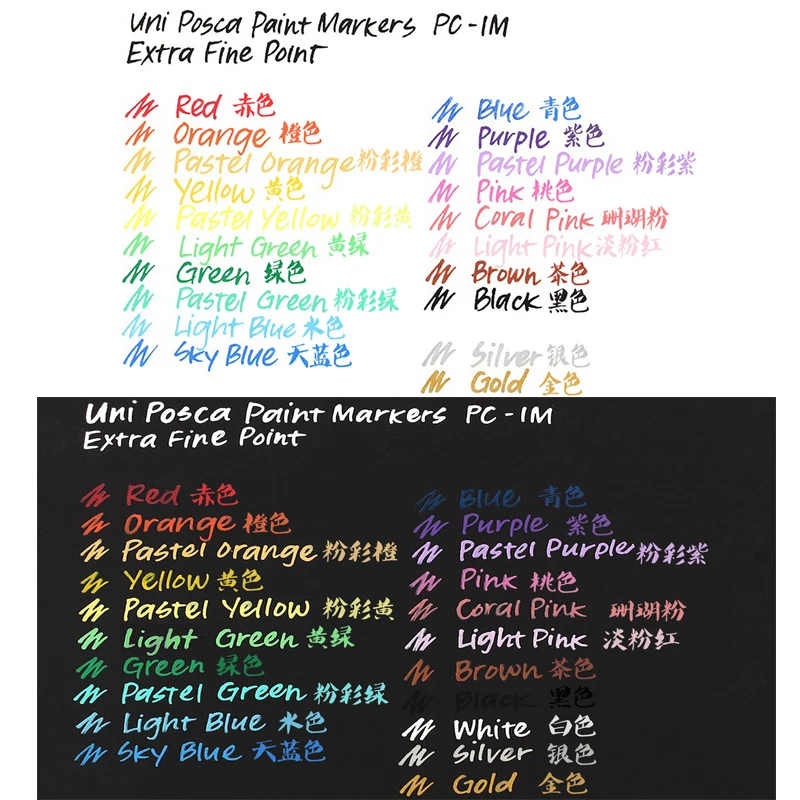 Uni Posca Paint Markers PC-1M
Extra Fine Point
Red 赤色
Orange 橙色
Pastel Orange 粉彩橙
Yellow 黄色
Pastel Yellow 粉彩黄
Light Green 黄绿
Green 绿色
Pastel Green 粉彩绿
Light Blue 水色
Sky Blue 天蓝色
Blue 青色
Purple 紫色
Pastel Purple 粉彩紫
Pink 桃色
Coral Pink 珊瑚粉
Light Pink 淡粉红
Brown 茶色
Black 黑色
Silver 银色
Gold 金色
Uni Posca Paint Markers PC-1M
Extra Fine Point
Red 赤色
Orange 橙色
Pastel Orange 粉彩橙
Yellow 黄色
Pastel Yellow 粉彩黄
Light Green 黄绿
Green 绿色
Pastel Green 粉彩绿
Light Blue 水色
Sky Blue 天蓝色
Blue 青色
Purple 紫色
Pastel Purple 粉彩紫
Pink 桃色
Coral Pink 珊瑚粉
Light Pink 淡粉红
Brown 茶色
Black 黑色
White 白色
Silver 银色
Gold 金色